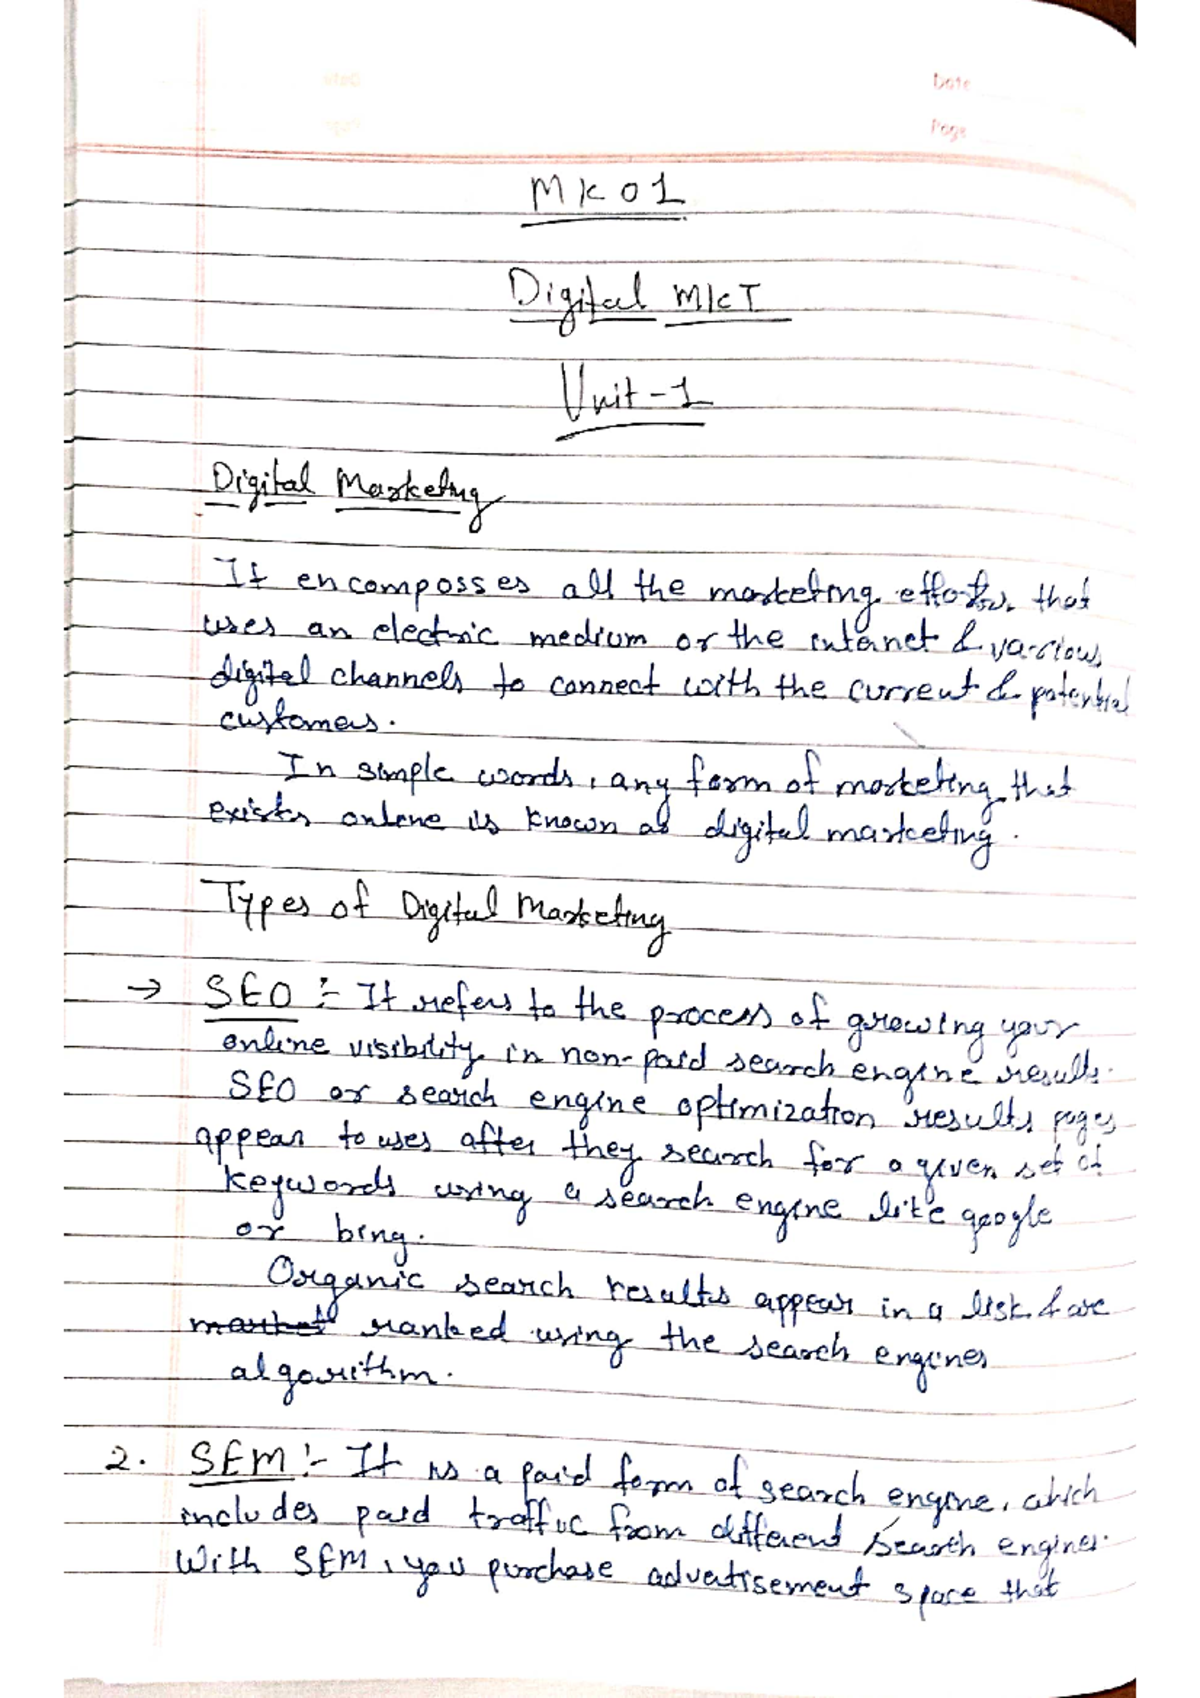 Date
Page
MK01
Digital MKT
Unit-1
Digital Marketing
It encomposses all the marketing efforts that
uses an electric medium or the internet & various
digital channels to connect with the current & potential
customers.
In simple words, any form of marketing that
exists online is known as digital marketing.
Types of Digital Marketing
→ SEO :- It refers to the process of growing your
online visibility in non-paid search engine results.
SEO or search engine optimization results pages
appear to uses after they search for a given set of
keywords using a search engine like google
or bing.
Organic search results appear in a list & are
market ranked using the search engines
algorithm.
2. SEM :- It is a paid form of search engine, which
includes paid traffic from different search engines.
With SEM, you purchase advertisement space that